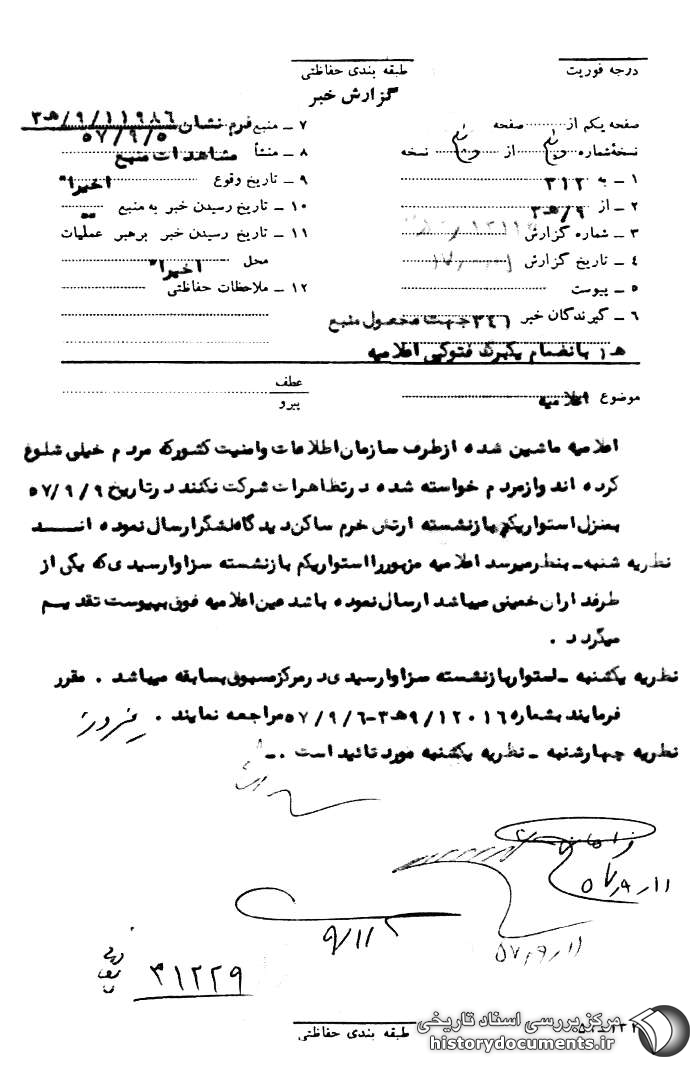 درجه فوریت
طبقه بندی حفاظتی
گزارش خبر
صفحه یکم از صفحه
نسخهٔ شماره از نسخه
۱ ـ به ۳۱۲
۲ ـ از ۹/هـ۳
۳ ـ شماره گزارش
۴ ـ تاریخ گزارش
۵ ـ پیوست
۶ ـ گیرندگان خبر ۳۴۶ جهت محصول منبع
هـ ۱ بانضمام یکبرگ فتوکپی اعلامیه
۷ ـ منبع فرم نشان ۱۱۹۸۶/۹/هـ۳
۵۷/۹/۵
۸ ـ منشأ مشاهدات منبع
۹ ـ تاریخ وقوع اخیرا"
۱۰ ـ تاریخ رسیدن خبر به منبع "
۱۱ ـ تاریخ رسیدن خبر برهبر عملیات
محل اخیرا"
۱۲ ـ ملاحظات حفاظتی
موضوع اعلامیه
عطف
پیرو
اعلامیه ماشین شده ازطرف سازمان اطلاعات وامنیت کشورکه مردم خیلی شلوغ
کرده اند وازمردم خواسته شده درتظاهرات شرکت نکنند درتاریخ ۵۷/۹/۹
بمنزل استواریکم بازنشسته ارتش خرم ساکن دیدگاه لشگرارسال نموده انــد
نظریه شنبه ـ بنظرمیرسد اعلامیه مزبوررا استواریکم بازنشسته سزاوارسیدی که یکی از
طرفداران خمینی میباشد ارسال نموده باشد عین اعلامیه فوق بپیوست تقدیــم
میگردد .
نظریه یکشنبه ـ استواربازنشسته سزاوارسیدی درمرکزمسبوق بسابقه میباشد . مقرر
فرمایند بشماره ۱۲۰۱۶/۹هـ۳ـ۵۷/۹/۶ مراجعه نمایند .
نظریه چهارشنبه ـ نظریه یکشنبه مورد تائید است .ـ
۵۷٫۹٫۱۱
۵۷٫۹٫۱۱
۹/۱۱
۳۱۲۲۹
طبقه بندی حفاظتی
مرکز بررسی اسناد تاریخی
historydocuments.ir